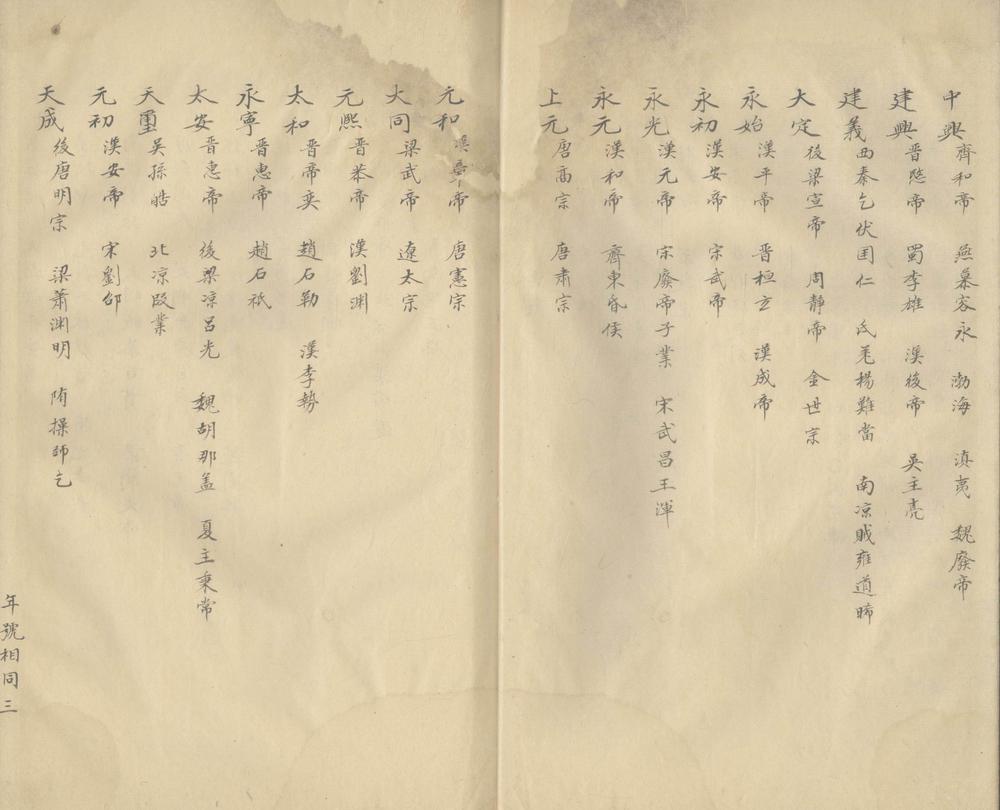 中興 齊和帝 燕慕容永 渤海 滇夷 魏廢帝
建興 晋愍帝 蜀李雄 漢後帝 吳主亮
建義 西秦乞伏国仁 氐羌楊難當 南凉賊雍道晞
大定 後梁宣帝 周靜帝 金世宗
永始 漢平帝 晋桓玄 漢成帝
永初 漢安帝 宋武帝
永光 漢元帝 宗廢帝子業 宋武昌王渾
永元 漢和帝 齊東昏侯
上元 唐高宗 唐肅宗
元和 漢章帝 唐憲宗
大同 梁武帝 遼太宗
元熙 晋恭帝 漢劉渊
太和 晋帝奕 趙石勒 漢李勢
永寧 晋惠帝 趙石祗
太安 晋惠帝 後梁凉呂光 魏胡那盖 夏主秉常
天璽 吴孫皓 北凉段業
元初 漢安帝 宋劉邰
天成 後唐明宗 梁蕭渊明 隋操師乞
年號相同 三